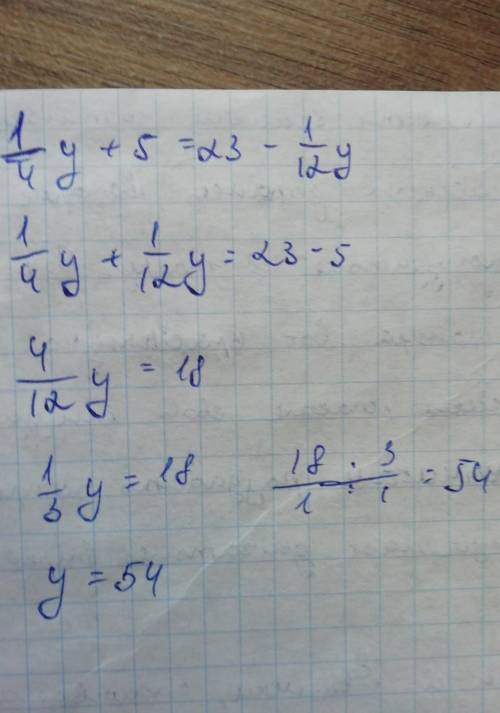 1/4 y + 5 = 23 - 1/12 y
1/4 y + 1/12 y = 23 - 5
4/12 y = 18
1/3 y = 18    18/1 · 3/1 = 54
y = 54